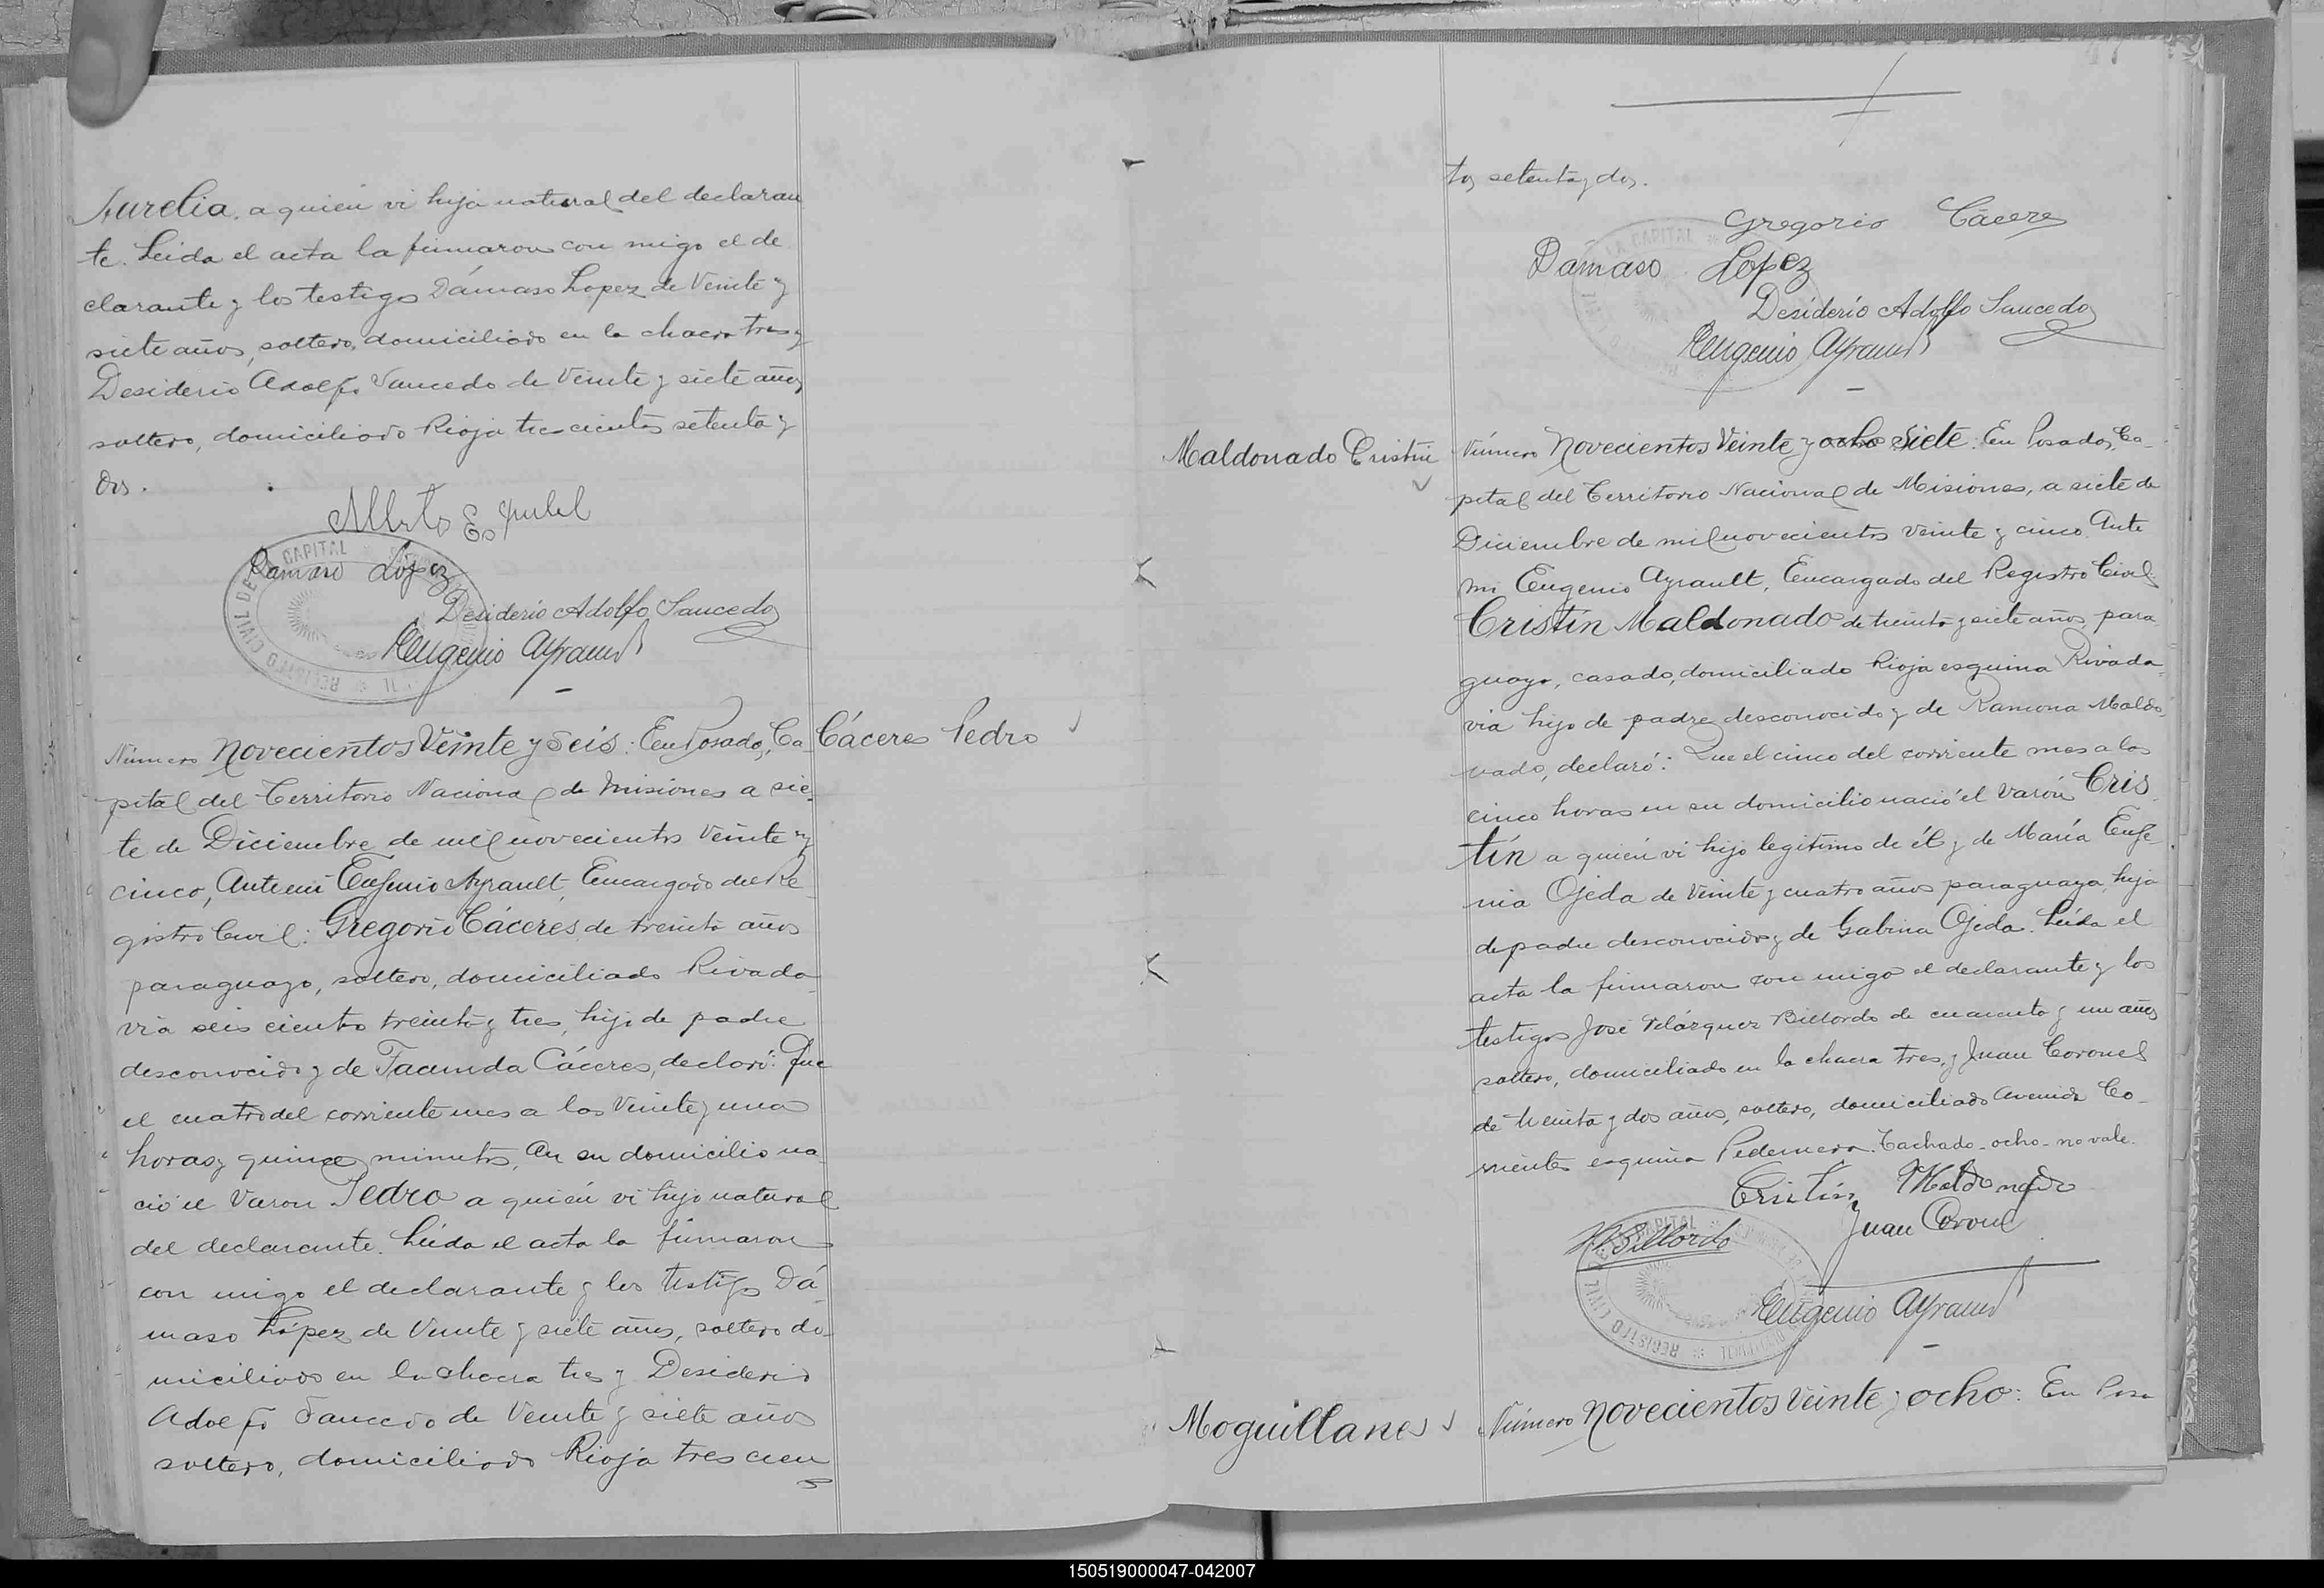 Aurelia, a quién vi hija natural del declaran
te. Leida el acta la firmaron con migo el de
clarante y los testigos Dámaso Lopez de Veinte y
siete años, soltero, domiciliado en la chacra tres y
Desiderio Adolfo Saucedo de Veinte y siete años
soltero, domiciliado Rioja trescientos setenta y
dos.
Alberto
Damaso López
Desiderio Adolfo Saucedo
Eugenio Ayrault
REGISTRO CIVIL DE LA CAPITAL
Número Novecientos Veinte y Seis: En Posadas, Ca
Cáceres Pedro
pital del Territorio Nacional de Misiones a sie
te de Diciembre de mil novecientos Veinte y
cinco, Ante mi Eugenio Ayrault, Encargado del Re
gistro Civil: Gregorio Cáceres, de treinta años
paraguayo, soltero, domiciliado Rivada
via seis cientos treinta y tres, hijo de padre
desconocido y de Facunda Cáceres, declaró: Que
el cuatro del corriente mes a las Veinte y una
horas y quince minutos, en su domicilio na
ció el Varon Pedro a quién vi hijo natural
del declarante. Leida el acta la firmaron
con migo el declarante y los testigos Dá
maso López de Veinte y siete años, soltero do
miciliado en la chacra tres y Desiderio
Adolfo Saucedo de Veinte y siete años
soltero, domiciliado Rioja tres cien
tos setenta y dos.
Gregorio Cácere
Damaso Lopez
Desiderio Adolfo Saucedo
Eugenio Ayrault
LA CAPITAL
Maldonado Cristín
Número Novecientos Veinte y ocho siete: En Posadas, Ca-
pital del Territorio Nacional de Misiones, a siete de
Diciembre de mil novecientos veinte y cinco. Ante
mi Eugenio Ayrault, Encargado del Registro Civil:
Cristín Maldonado de treinta y siete años, para
guayo, casado, domiciliado Rioja esquina Rivada-
via hijo de padre desconocido y de Ramona Maldo
nado, declaró: Que el cinco del corriente mes a las
cinco horas en su domicilio nació el Varón Cris
tín a quién vi hijo legítimo de él y de María Euge
nia Ojeda de Veinte y cuatro años paraguaya, hija
de padre desconocido y de Gabina Ojeda. Leída el
acta la firmaron con migo el declarante y los
testigos José Velázquez Billordo de cuarenta y un años
soltero, domiciliado en la chacra tres, y Juan Coronel
de treinta y dos años, soltero, domiciliado Avenida Co-
rrientes esquina Pedernera. Tachado-ocho-no vale.
Cristín Maldonado
Juan Coronel
Billordo
Eugenio Ayrault
REGISTRO CIVIL DE LA CAPITAL
Moguillanes
Número Novecientos Veinte y ocho: En Posa
150519000047-042007